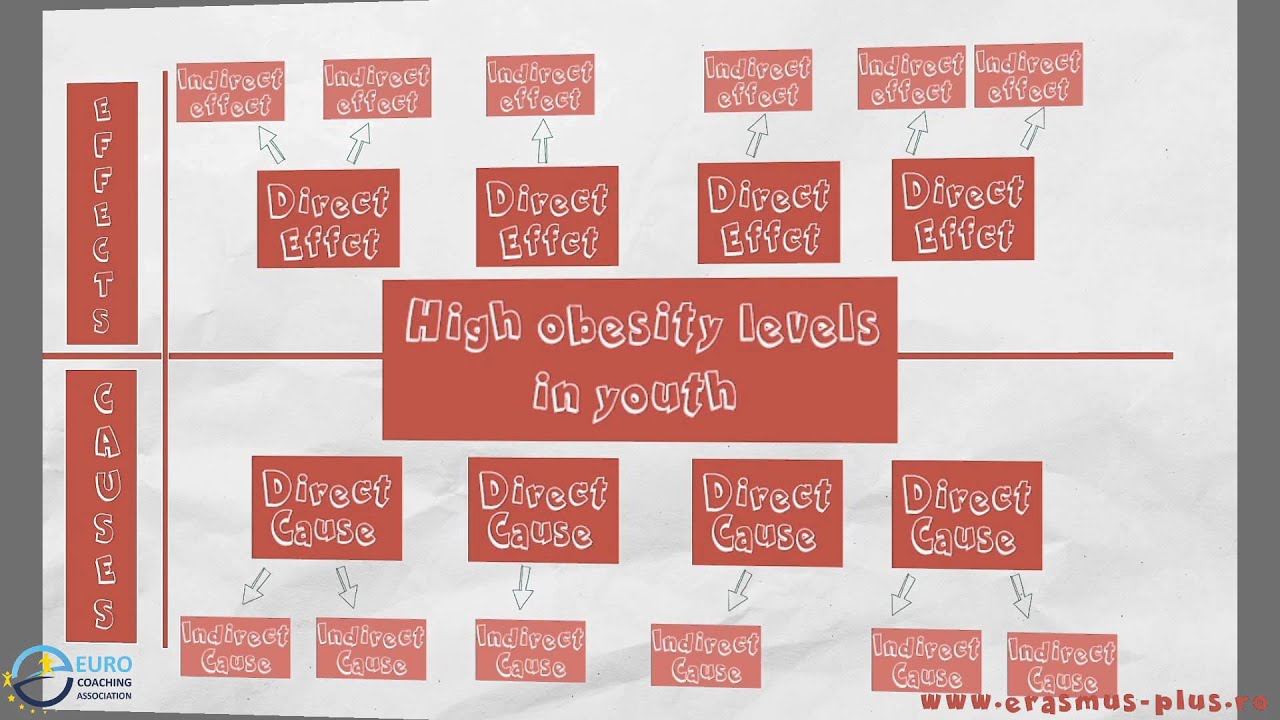 EFFECTS
Indirect
effect
Indirect
effect
Indirect
effect
Indirect
effect
Indirect
effect
Indirect
effect
Direct
Effct
Direct
Effct
Direct
Effct
Direct
Effct
High obesity levels
in youth
CAUSES
Direct
Cause
Direct
Cause
Direct
Cause
Direct
Cause
Indirect
Cause
Indirect
Cause
Indirect
Cause
Indirect
Cause
Indirect
Cause
Indirect
Cause
EURO
COACHING
ASSOCIATION
www.erasmus-plus.ro